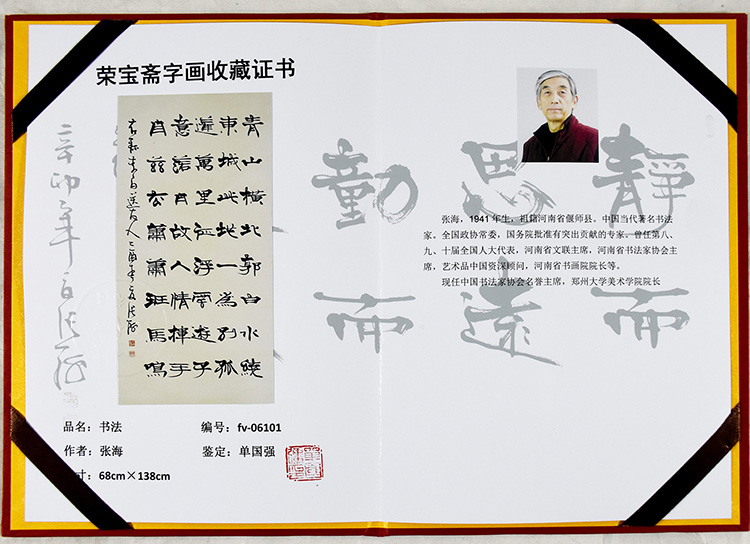 荣宝斋字画收藏证书
青山橫北郭白水繞
東城此地一為别孤
蓬萬里征浮雲遊子
意落日故人情揮手
自兹去蕭蕭班馬鳴
品名：书法
编号：fv-06101
作者：张海
鉴定：单国强
寸：68cm×138cm
靜思動
而遠而
张海，1941年生，祖籍河南省偃师县。中国当代著名书法
家。全国政协常委，国务院批准有突出贡献的专家。曾任第八、
九、十届全国人大代表，河南省文联主席，河南省书法家协会主
席，艺术品中国资深顾问，河南省书画院院长等。
现任中国书法家协会名誉主席，郑州大学美术学院院长